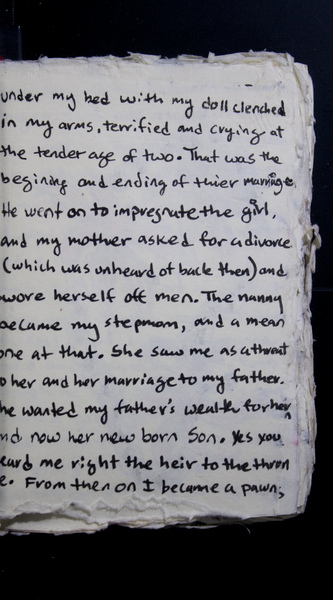 under my bed with my doll clenched
in my arms, terrified and crying at
the tender age of two. That was the
begining and ending of thier marriage.
He went on to impregnate the girl,
and my mother asked for a divorce
(which was unheard of back then) and
wore herself off men. The nanny
became my stepmom, and a mean
one at that. She saw me as a threat
o her and her marriage to my father.
he wanted my father's wealth for her
nd now her new born Son. Yes you
eard me right the heir to the thron
e. From then on I became a pawn;